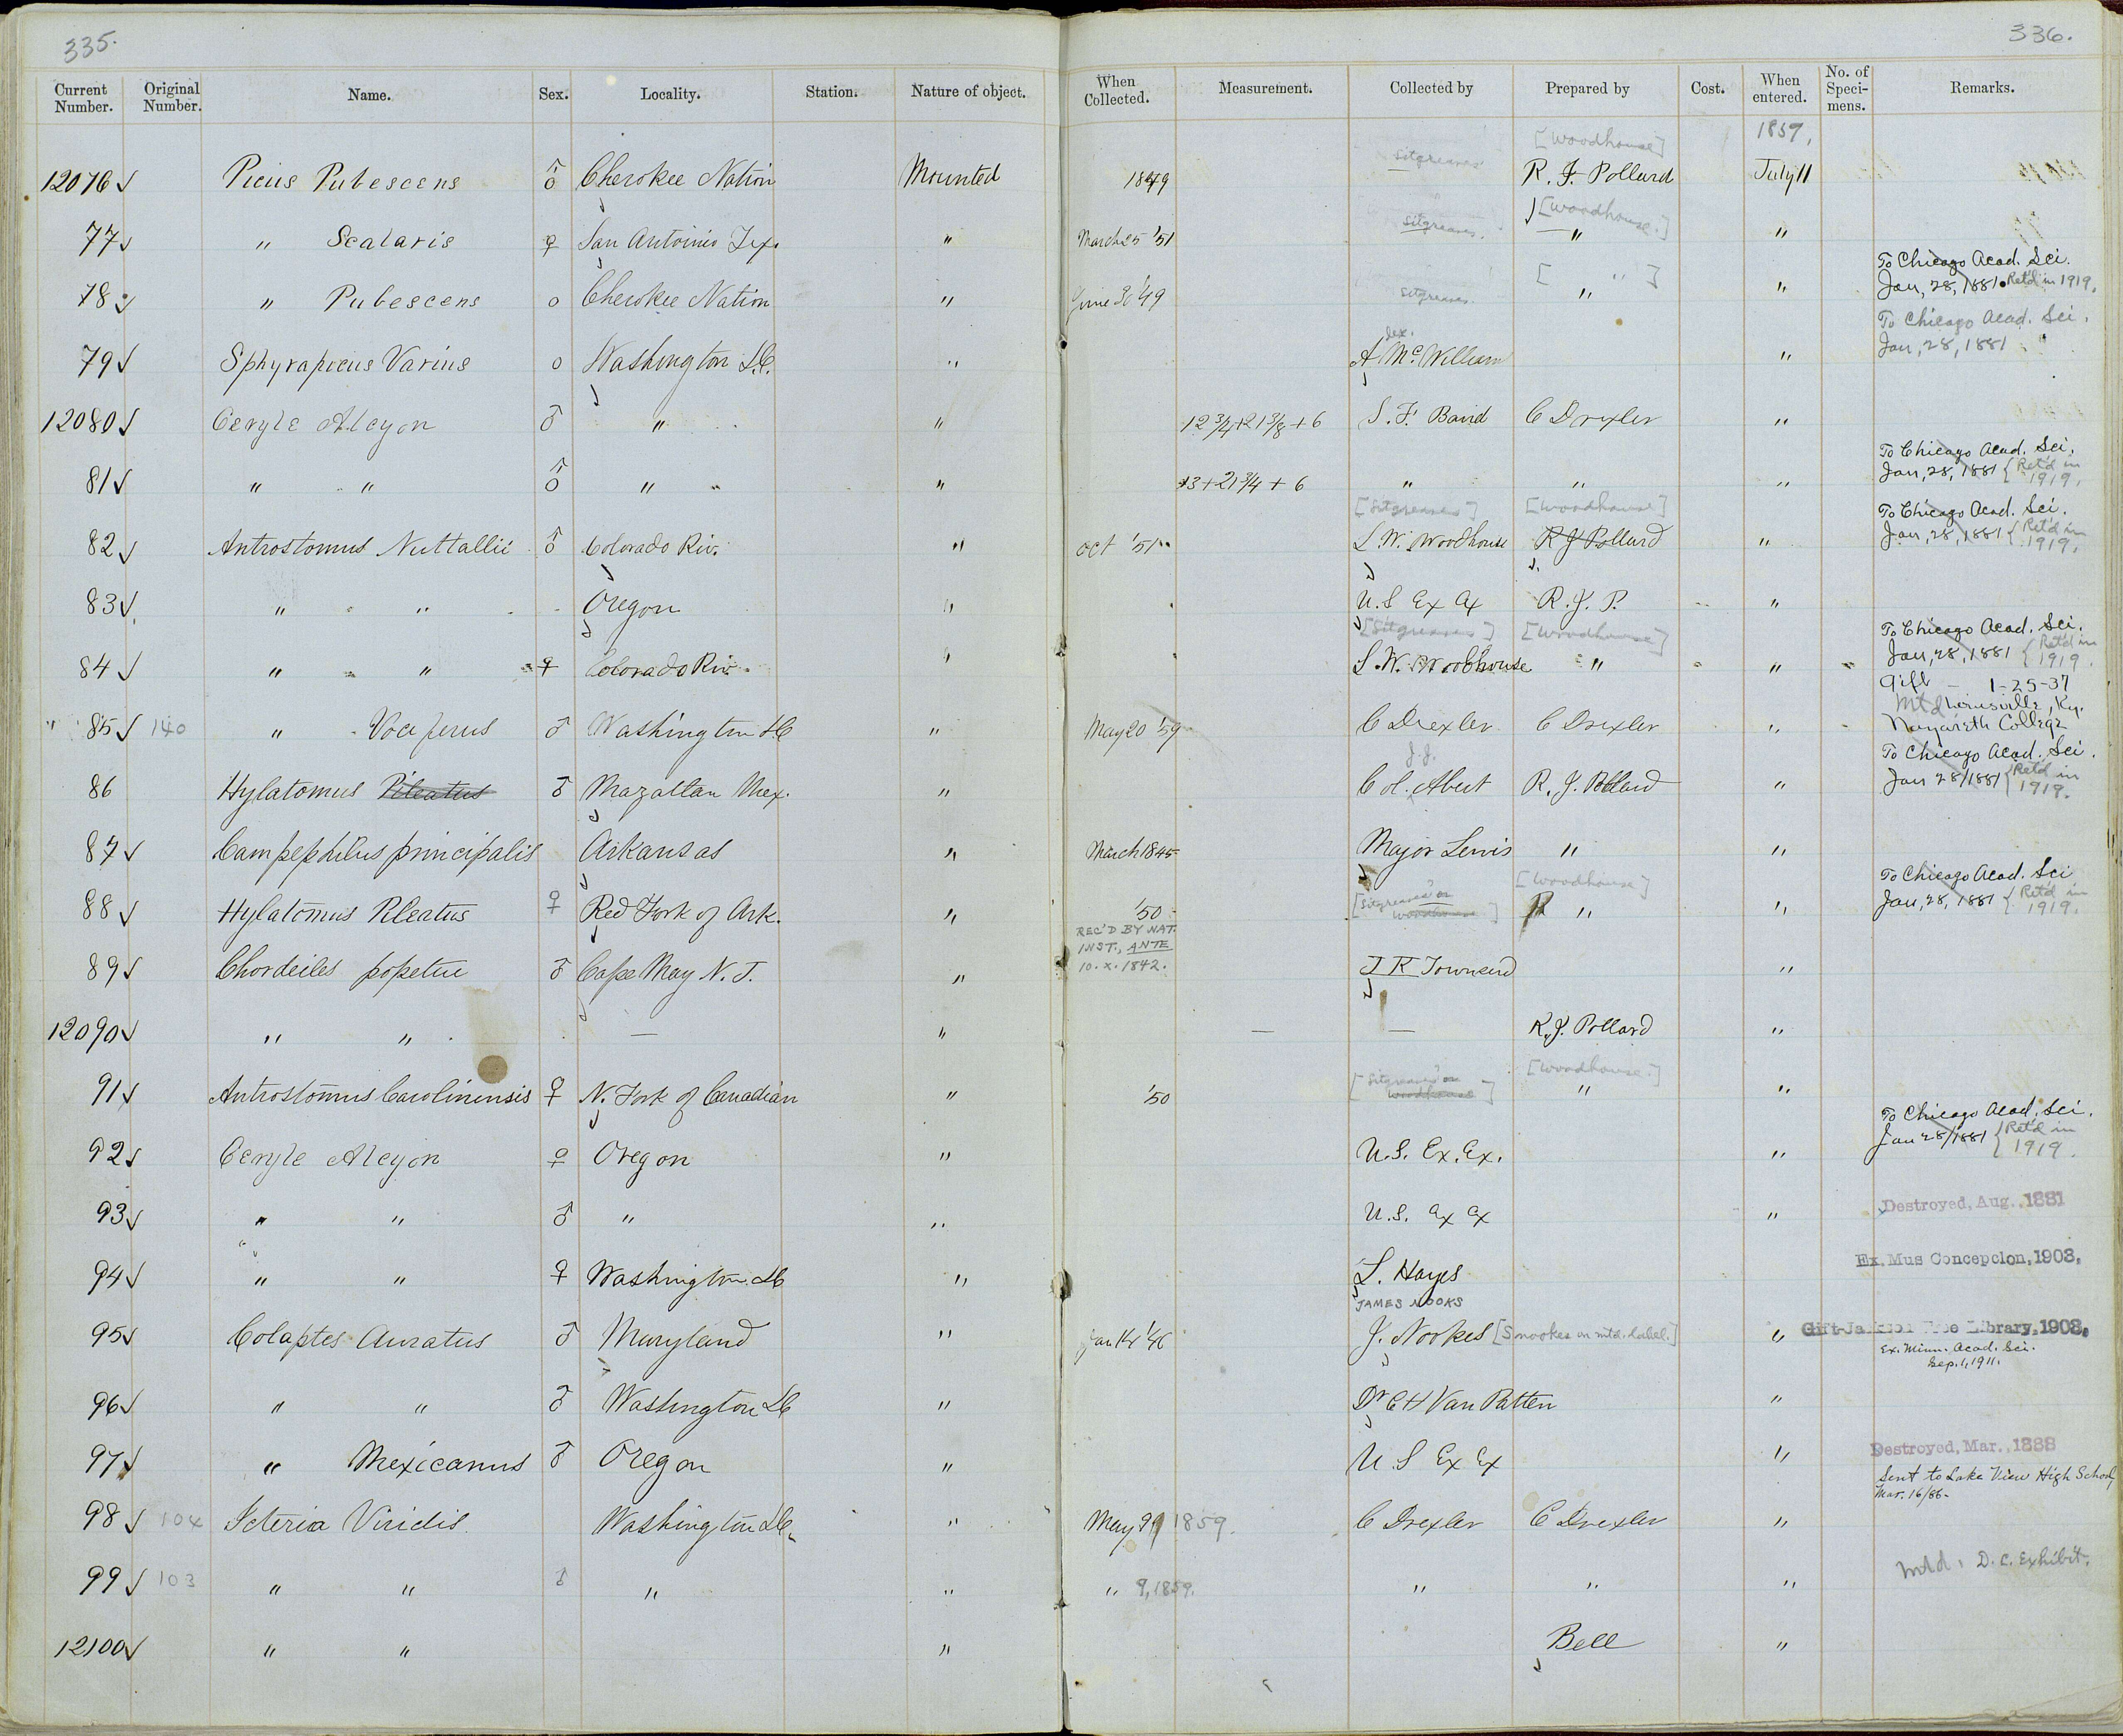 335.
336.
Current Number. Original Number. Name. Sex. Locality. Station. Nature of object. When Collected. Measurement. Collected by Prepared by Cost. When entered. No. of Specimens. Remarks.
[Woodhouse] 1859,
12076 Picus Pubescens ♂ Cherokee Nation Mounted 1849 Sitgreaves R. J. Pollard July 11
[Woodhouse.]
77 " Scalaris ♀ San Antoinio Tex. " March 25 '51 Sitgreaves. " "
To Chicago Acad. Sci.
78 " Pubescens o Cherokee Nation " June 30 '49 Sitgreaves. [ " ] " " Jan, 28, 1881. Ret'd in 1919.
To Chicago Acad. Sci.
79 Sphyrapicus Varius o Washington D.C. " Alex. McWilliam " Jan, 28, 1881
12080 Ceryle Alcyon ♂ " " 12 3/4+21 3/8+6 S. F. Baird C Drexler "
To Chicago Acad. Sci.
81 " " ♂ " " 13+21 3/4+6 " " " Jan, 28, 1881 { Ret'd in 1919.
[Sitgreaves] [Woodhouse] To Chicago Acad. Sci.
82 Antrostomus Nuttallii ♂ Colorado Riv. " Oct '51 S. W. Woodhouse R J Pollard " Jan, 28, 1881 { Ret'd in 1919.
83 " " Oregon " U.S Ex Ex R. J. P. "
[Sitgreaves] [Woodhouse] To Chicago Acad. Sci.
84 " " ♀ Colorado Riv. " S. W. Woodhouse " " Jan, 28, 1881 { Ret'd in 1919.
Gift - 1-25-37
Mtd Louisville, Ky.
" 85 140 " Vociferus ♂ Washington DC " May 20 '59 C Drexler C Drexler " Nazareth College
J.J. To Chicago Acad. Sci.
86 Hylatomus Pileatus ♂ Mazatlan Mex. " Col. Abert R. J. Pollard " Jan 28/1881 { Ret'd in 1919.
87 Campephilus principalis Arkansas " March 1845 Major Lewis " "
[Woodhouse] To Chicago Acad. Sci
88 Hylatomus Pileatus ♀ Red Fork of Ark. " '50 [Sitgreaves' on Woodhouse] R " " Jan, 28, 1881 { Ret'd in 1919.
REC'D BY NAT. INST., ANTE 10.X.1842.
89 Chordeiles popetue ♂ Cape May N. J. " J K Townsend "
12090 " " — " — — R. J. Pollard "
[Woodhouse.]
91 Antrostomus Carolinensis ♀ N. Fork of Canadian " '50 [Sitgreaves' on Woodhouse] " "
To Chicago Acad. Sci.
92 Ceryle Alcyon ♀ Oregon " U.S. Ex. Ex. " Jan 28/1881 { Ret'd in 1919.
93 " " ♂ " " U.S. Ex Ex " Destroyed, Aug., 1881
Ex. Mus Concepcion, 1903.
94 " " ♀ Washington. DC " L. Hayes
JAMES NOOKS
95 Colaptes Auratus ♂ Maryland " Jan 14 '46 J. Nookes [Snookes on mtd. label.] " Gift-Jackson Free Library, 1903.
Ex. Minn. Acad. Sci.
Sep. 1, 1911.
96 " " ♂ Washington DC " Dr C H Van Patten "
97 " Mexicanus ♂ Oregon " U S Ex Ex " Destroyed, Mar., 1888
Sent to Lake View High School,
Mar. 16/86-
98 104 Icteria Viridis Washington DC " May 9 1859. C Drexler C Drexler "
99 103 " " ♂ " " " 9, 1859. " " " Mtd. D. C. Exhibit.
12100 " " " Bell "